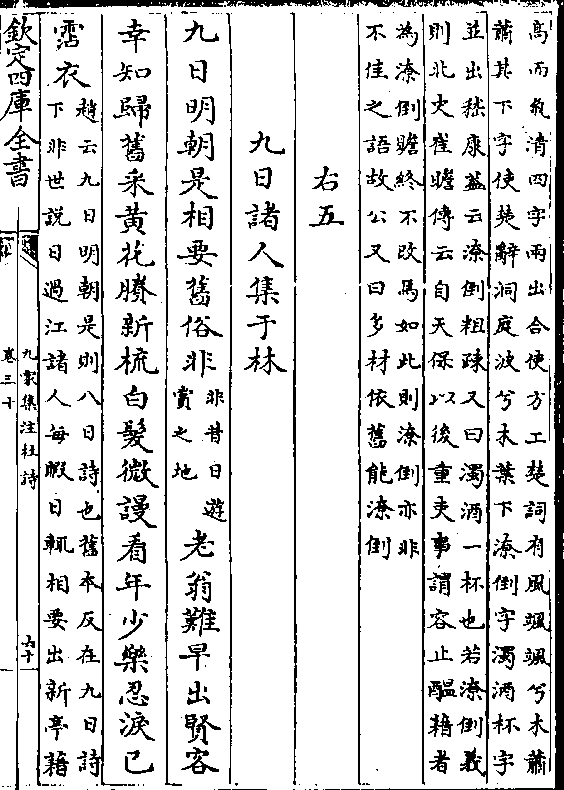 高而氣清四字兩出合使方工楚詞有風颯颯兮木蕭
蕭其下字使楚辭洞庭波兮木葉下潦倒字濁酒杯字
並出嵇康蓋云潦倒粗疎又曰濁酒一杯也若潦倒義
則北史崔瞻傳云自天保以後重吏事謂容止醞藉者
為潦倒瞻終不改焉如此則潦倒亦非
不佳之語故公又曰多材依舊能潦倒
右五
九日諸人集于林
九日明朝是相要舊俗非非昔日遊賞之地老翁難早出賢客
幸知歸舊采黃花賸新梳白髮微謾看年少樂忍淚已
霑衣趙云九日明朝是則八日詩也舊本反在九日詩
下非世說曰過江諸人每暇日輒相要出新亭藉
欽定四庫全書
九家集注杜詩
卷三十
六十